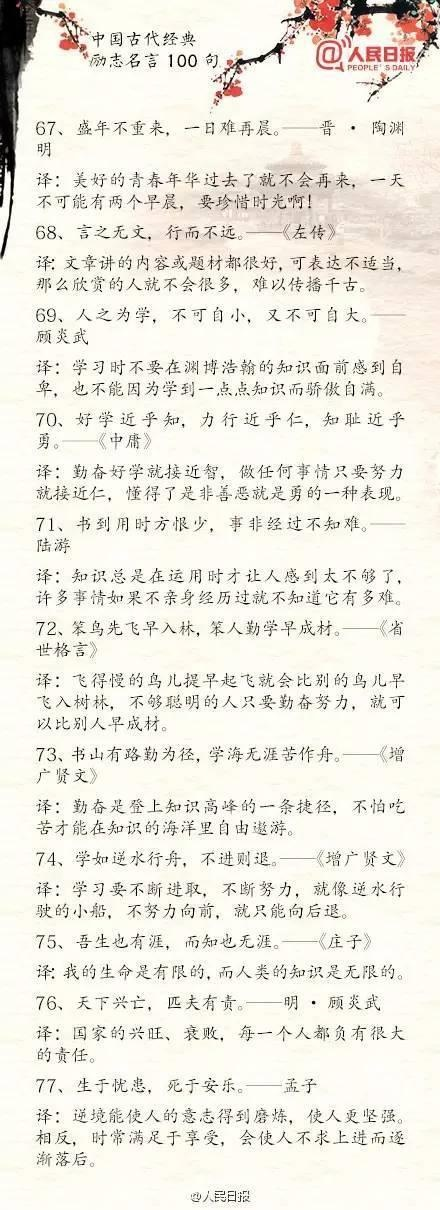 中国古代经典
励志名言100句
@人民日报
PEOPLE'S DAILY
67、盛年不重来，一日难再晨。——晋·陶渊
明
译：美好的青春年华过去了就不会再来，一天
不可能有两个早晨，要珍惜时光啊！
68、言之无文，行而不远。——《左传》
译：文章讲的内容或题材都很好，可表达不适当，
那么欣赏的人就不会很多，难以传播千古。
69、人之为学，不可自小，又不可自大。——
顾炎武
译：学习时不要在渊博浩瀚的知识面前感到自
卑，也不能因为学到一点点知识而骄傲自满。
70、好学近乎知，力行近乎仁，知耻近乎
勇。——《中庸》
译：勤奋好学就接近智，做任何事情只要努力
就接近仁，懂得了是非善恶就是勇的一种表现。
71、书到用时方恨少，事非经过不知难。——
陆游
译：知识总是在运用时才让人感到太不够了，
许多事情如果不亲身经历过就不知道它有多难。
72、笨鸟先飞早入林，笨人勤学早成材。——《省
世格言》
译：飞得慢的鸟儿提早起飞就会比别的鸟儿早
飞入树林，不够聪明的人只要勤奋努力，就可
以比别人早成材。
73、书山有路勤为径，学海无涯苦作舟。——《增
广贤文》
译：勤奋是登上知识高峰的一条捷径，不怕吃
苦才能在知识的海洋里自由遨游。
74、学如逆水行舟，不进则退。——《增广贤文》
译：学习要不断进取，不断努力，就像逆水行
驶的小船，不努力向前，就只能向后退。
75、吾生也有涯，而知也无涯。——《庄子》
译：我的生命是有限的，而人类的知识是无限的。
76、天下兴亡，匹夫有责。——明·顾炎武
译：国家的兴旺、衰败，每一个人都负有很大
的责任。
77、生于忧患，死于安乐。——孟子
译：逆境能使人的意志得到磨炼，使人更坚强。
相反，时常满足于享受，会使人不求上进而逐
渐落后。
@人民日报